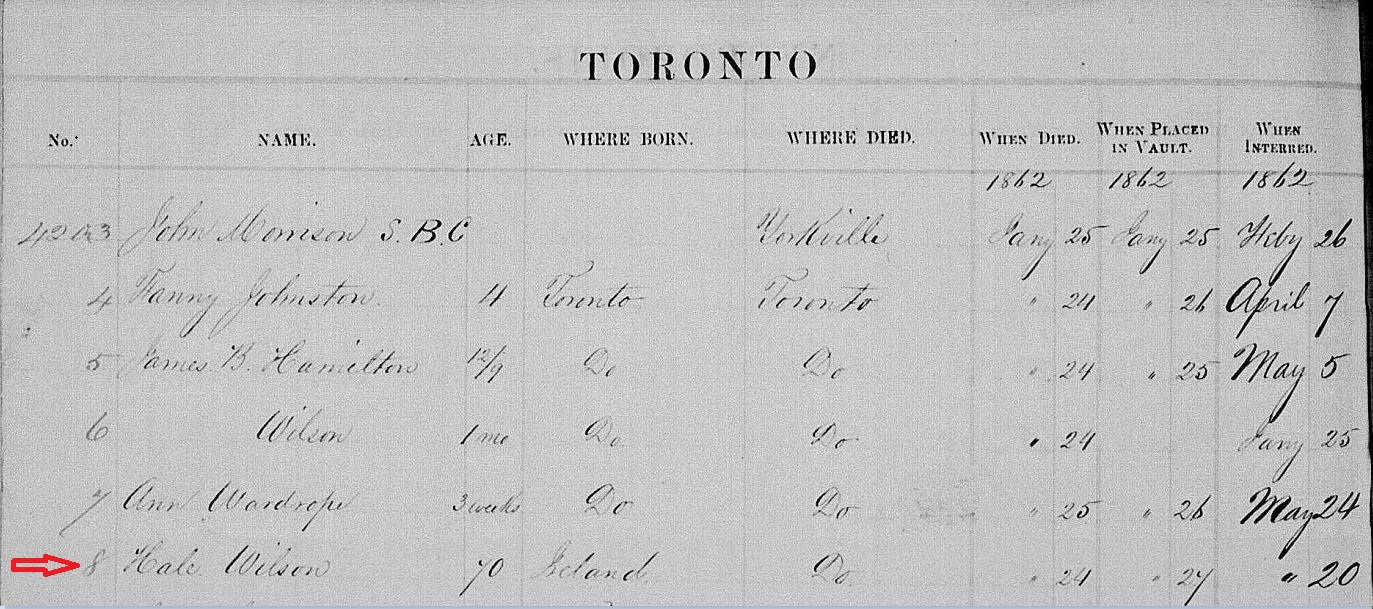 TORONTO
No. NAME. AGE. WHERE BORN. WHERE DIED. WHEN DIED. WHEN PLACED IN VAULT. WHEN INTERRED.
1862 1862 1862
John Morrison S. B. C Yorkville Jany 25 Jany 25 Feby 26
4 Fanny Johnston. 4 Toronto Toronto " 24 " 26 April 7
5 James B. Hamilton 12/9 Do Do " 24 " 25 May 5
6 Wilson 1 mo Do Do " 24 Jany 25
7 Ann Wardrope 3 weeks Do Do " 25 " 26 May 24
8 Hale Wilson 70 Ireland Do " 24 " 27 " 20